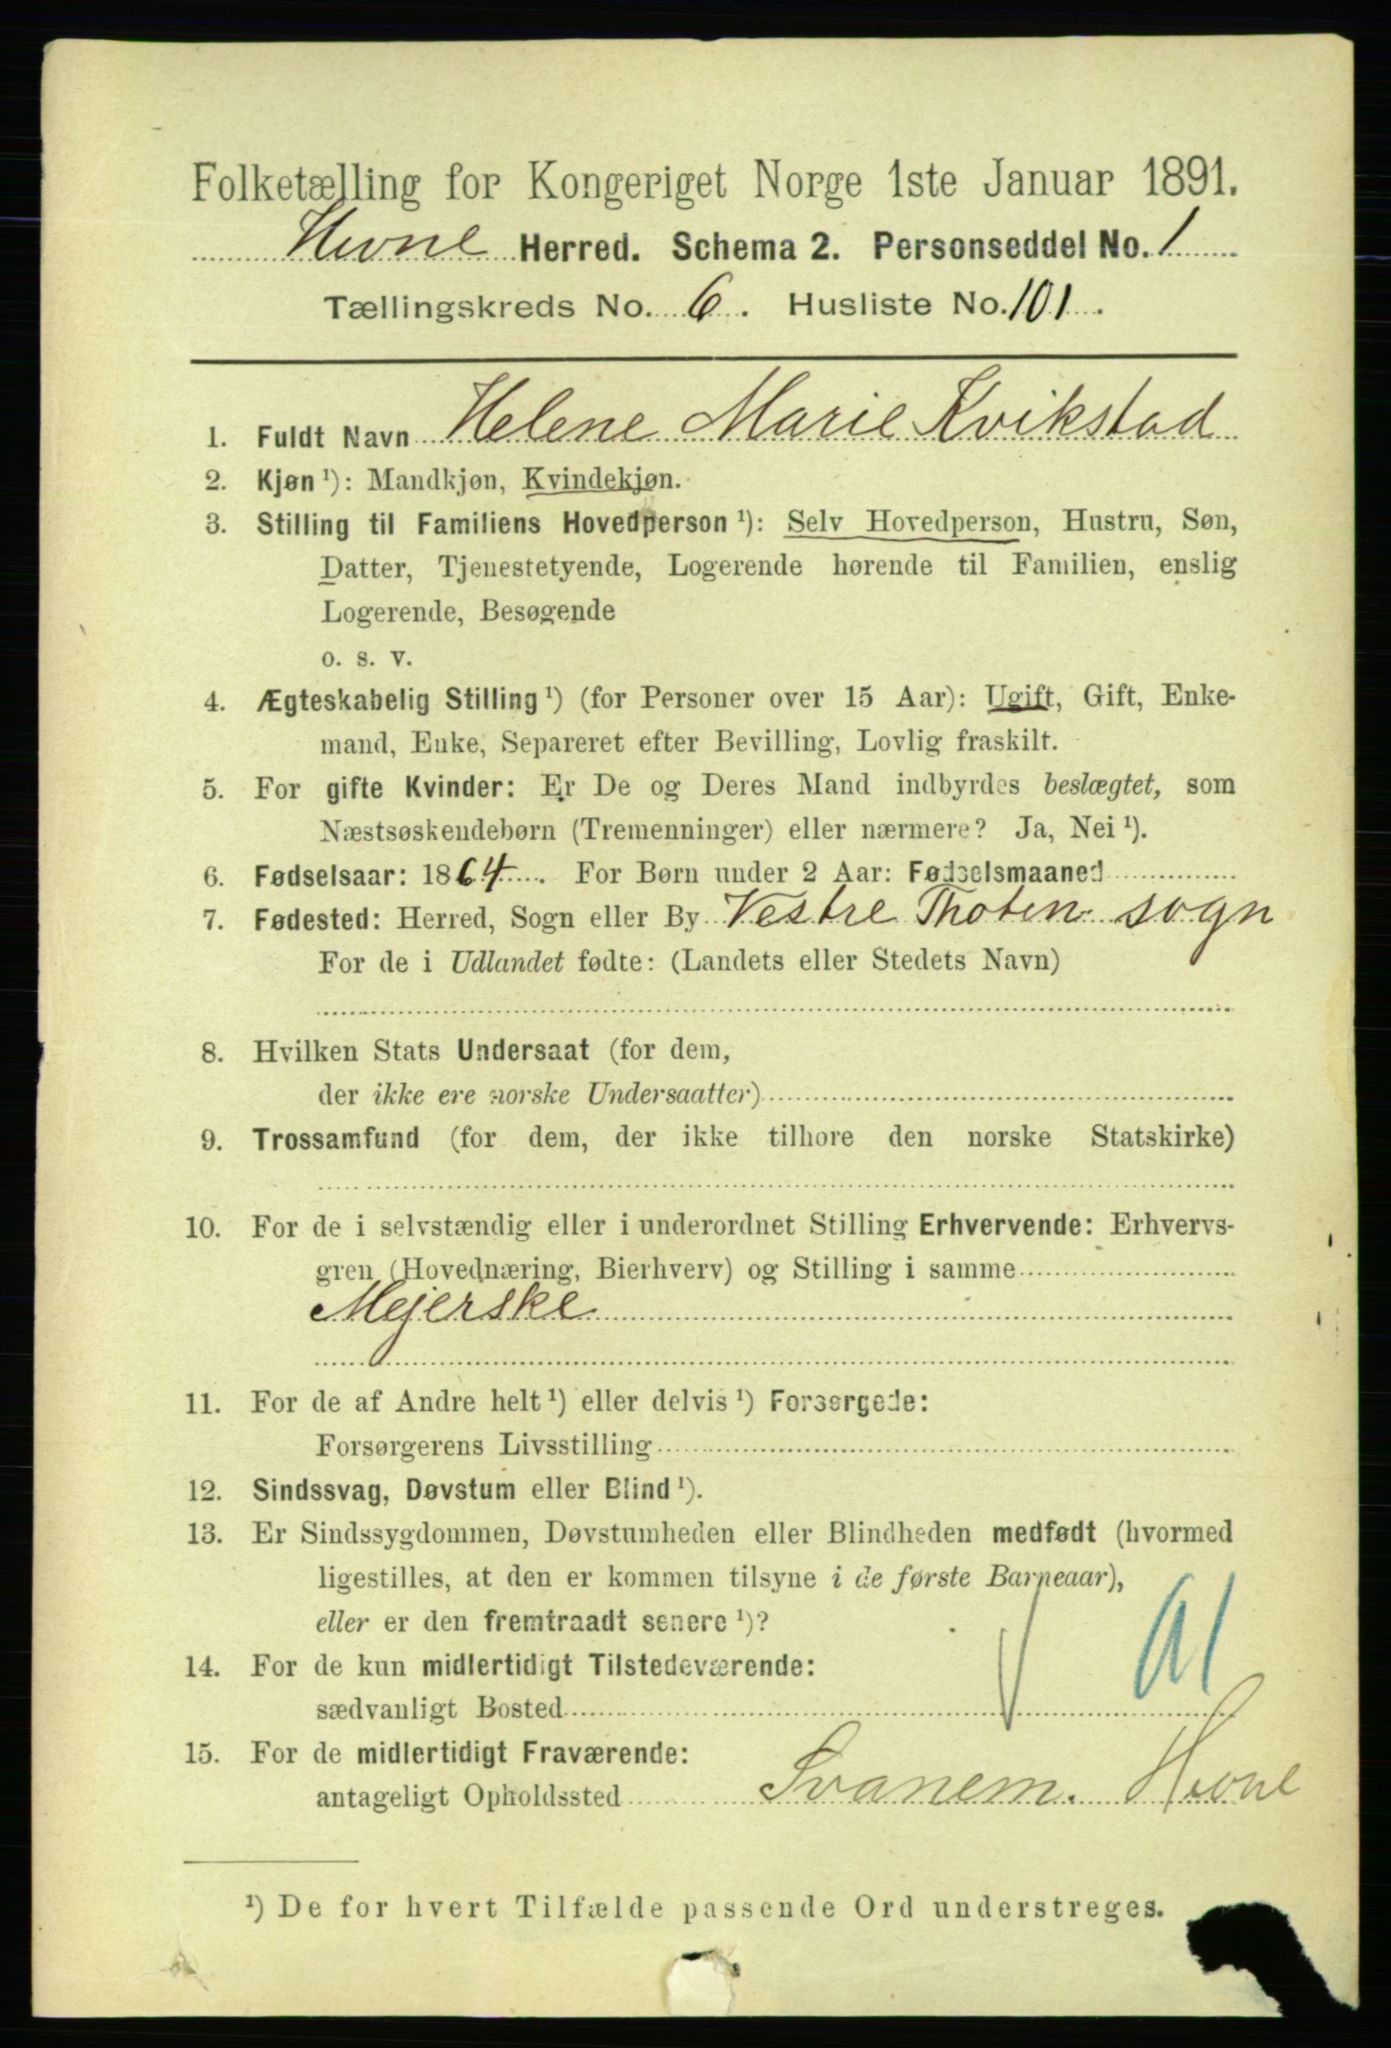 Folketælling for Kongeriget Norge 1ste Januar 1891.
Hevne Herred. Schema 2. Personseddel No. 1
Tællingskreds No. 6. Husliste No. 101.
1. Fuldt Navn Helene Marie Kvikstad
2. Kjøn ¹): Mandkjøn, Kvindekjøn.
3. Stilling til Familiens Hovedperson ¹): Selv Hovedperson, Hustru, Søn,
Datter, Tjenestetyende, Logerende hørende til Familien, enslig
Logerende, Besøgende
o. s. v.
4. Ægteskabelig Stilling ¹) (for Personer over 15 Aar): Ugift, Gift, Enke-
mand, Enke, Separeret efter Bevilling, Lovlig fraskilt.
5. For gifte Kvinder: Er De og Deres Mand indbyrdes beslægtet, som
Næstsøskendebørn (Tremenninger) eller nærmere? Ja, Nei ¹).
6. Fødselsaar: 1864. For Børn under 2 Aar: Fødselsmaaned
7. Fødested: Herred, Sogn eller By Vestre Thoten sogn
For de i Udlandet fødte: (Landets eller Stedets Navn)
8. Hvilken Stats Undersaat (for dem,
der ikke ere norske Undersaatter)
9. Trossamfund (for dem, der ikke tilhøre den norske Statskirke)
10. For de i selvstændig eller i underordnet Stilling Erhvervende: Erhvervs-
gren (Hovednæring, Bierhverv) og Stilling i samme
Mejerske
11. For de af Andre helt ¹) eller delvis ¹) Forsørgede:
Forsørgerens Livsstilling
12. Sindssvag, Døvstum eller Blind ¹).
13. Er Sindssygdommen, Døvstumheden eller Blindheden medfødt (hvormed
ligestilles, at den er kommen tilsyne i de første Barneaar),
eller er den fremtraadt senere ¹)?
14. For de kun midlertidigt Tilstedeværende:
sædvanligt Bosted
15. For de midlertidigt Fraværende:
antageligt Opholdssted Svanem. Hevne
¹) De for hvert Tilfælde passende Ord understreges.